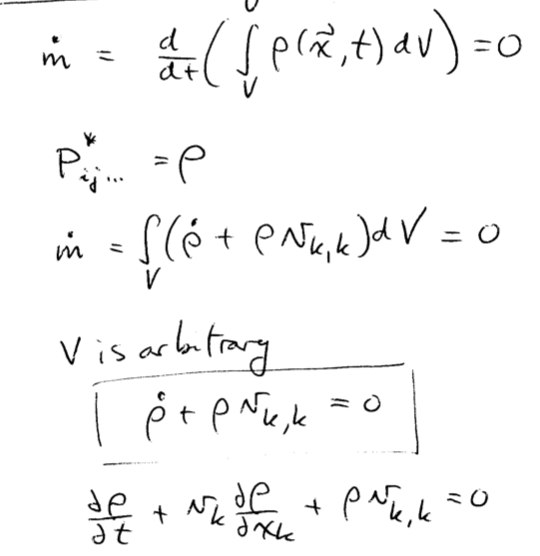 ṁ = d/dt ( ∫_V ρ(x⃗,t) dV ) = 0
P*_ij... = ρ
ṁ = ∫_V (ρ̇ + ρ v_k,k) dV = 0
V is arbitrary
ρ̇ + ρ v_k,k = 0
∂ρ/∂t + v_k ∂ρ/∂x_k + ρ v_k,k = 0